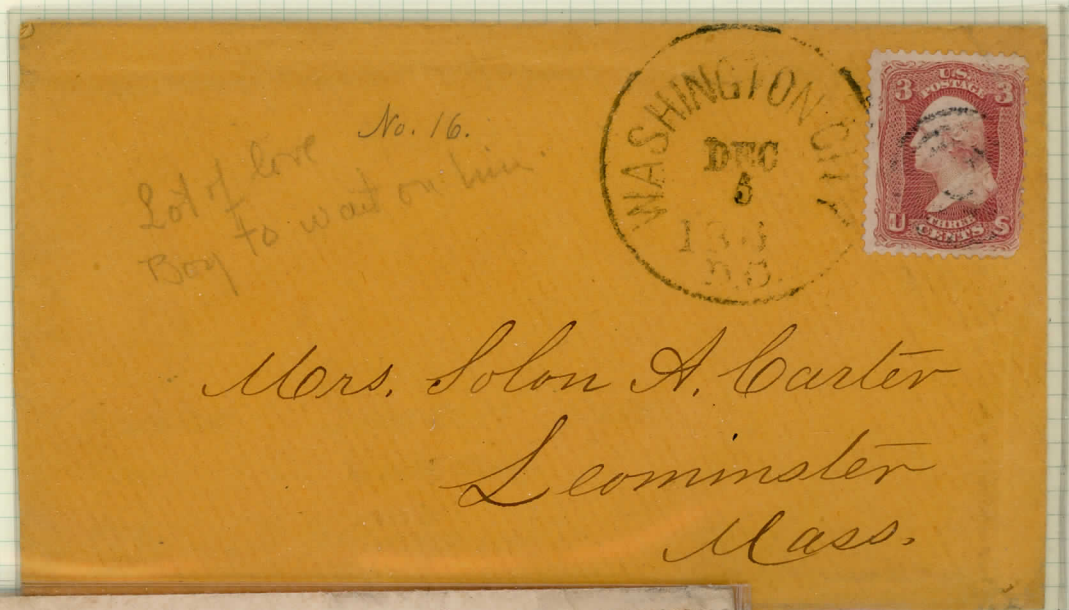 No. 16.
Lot of love
to wait on him.
Boy
WASHINGTON CITY
DEC
5
D.C.
3 U.S. 3
POSTAGE
U THREE S
CENTS
Mrs. Solon A. Carter
Leominster
Mass.